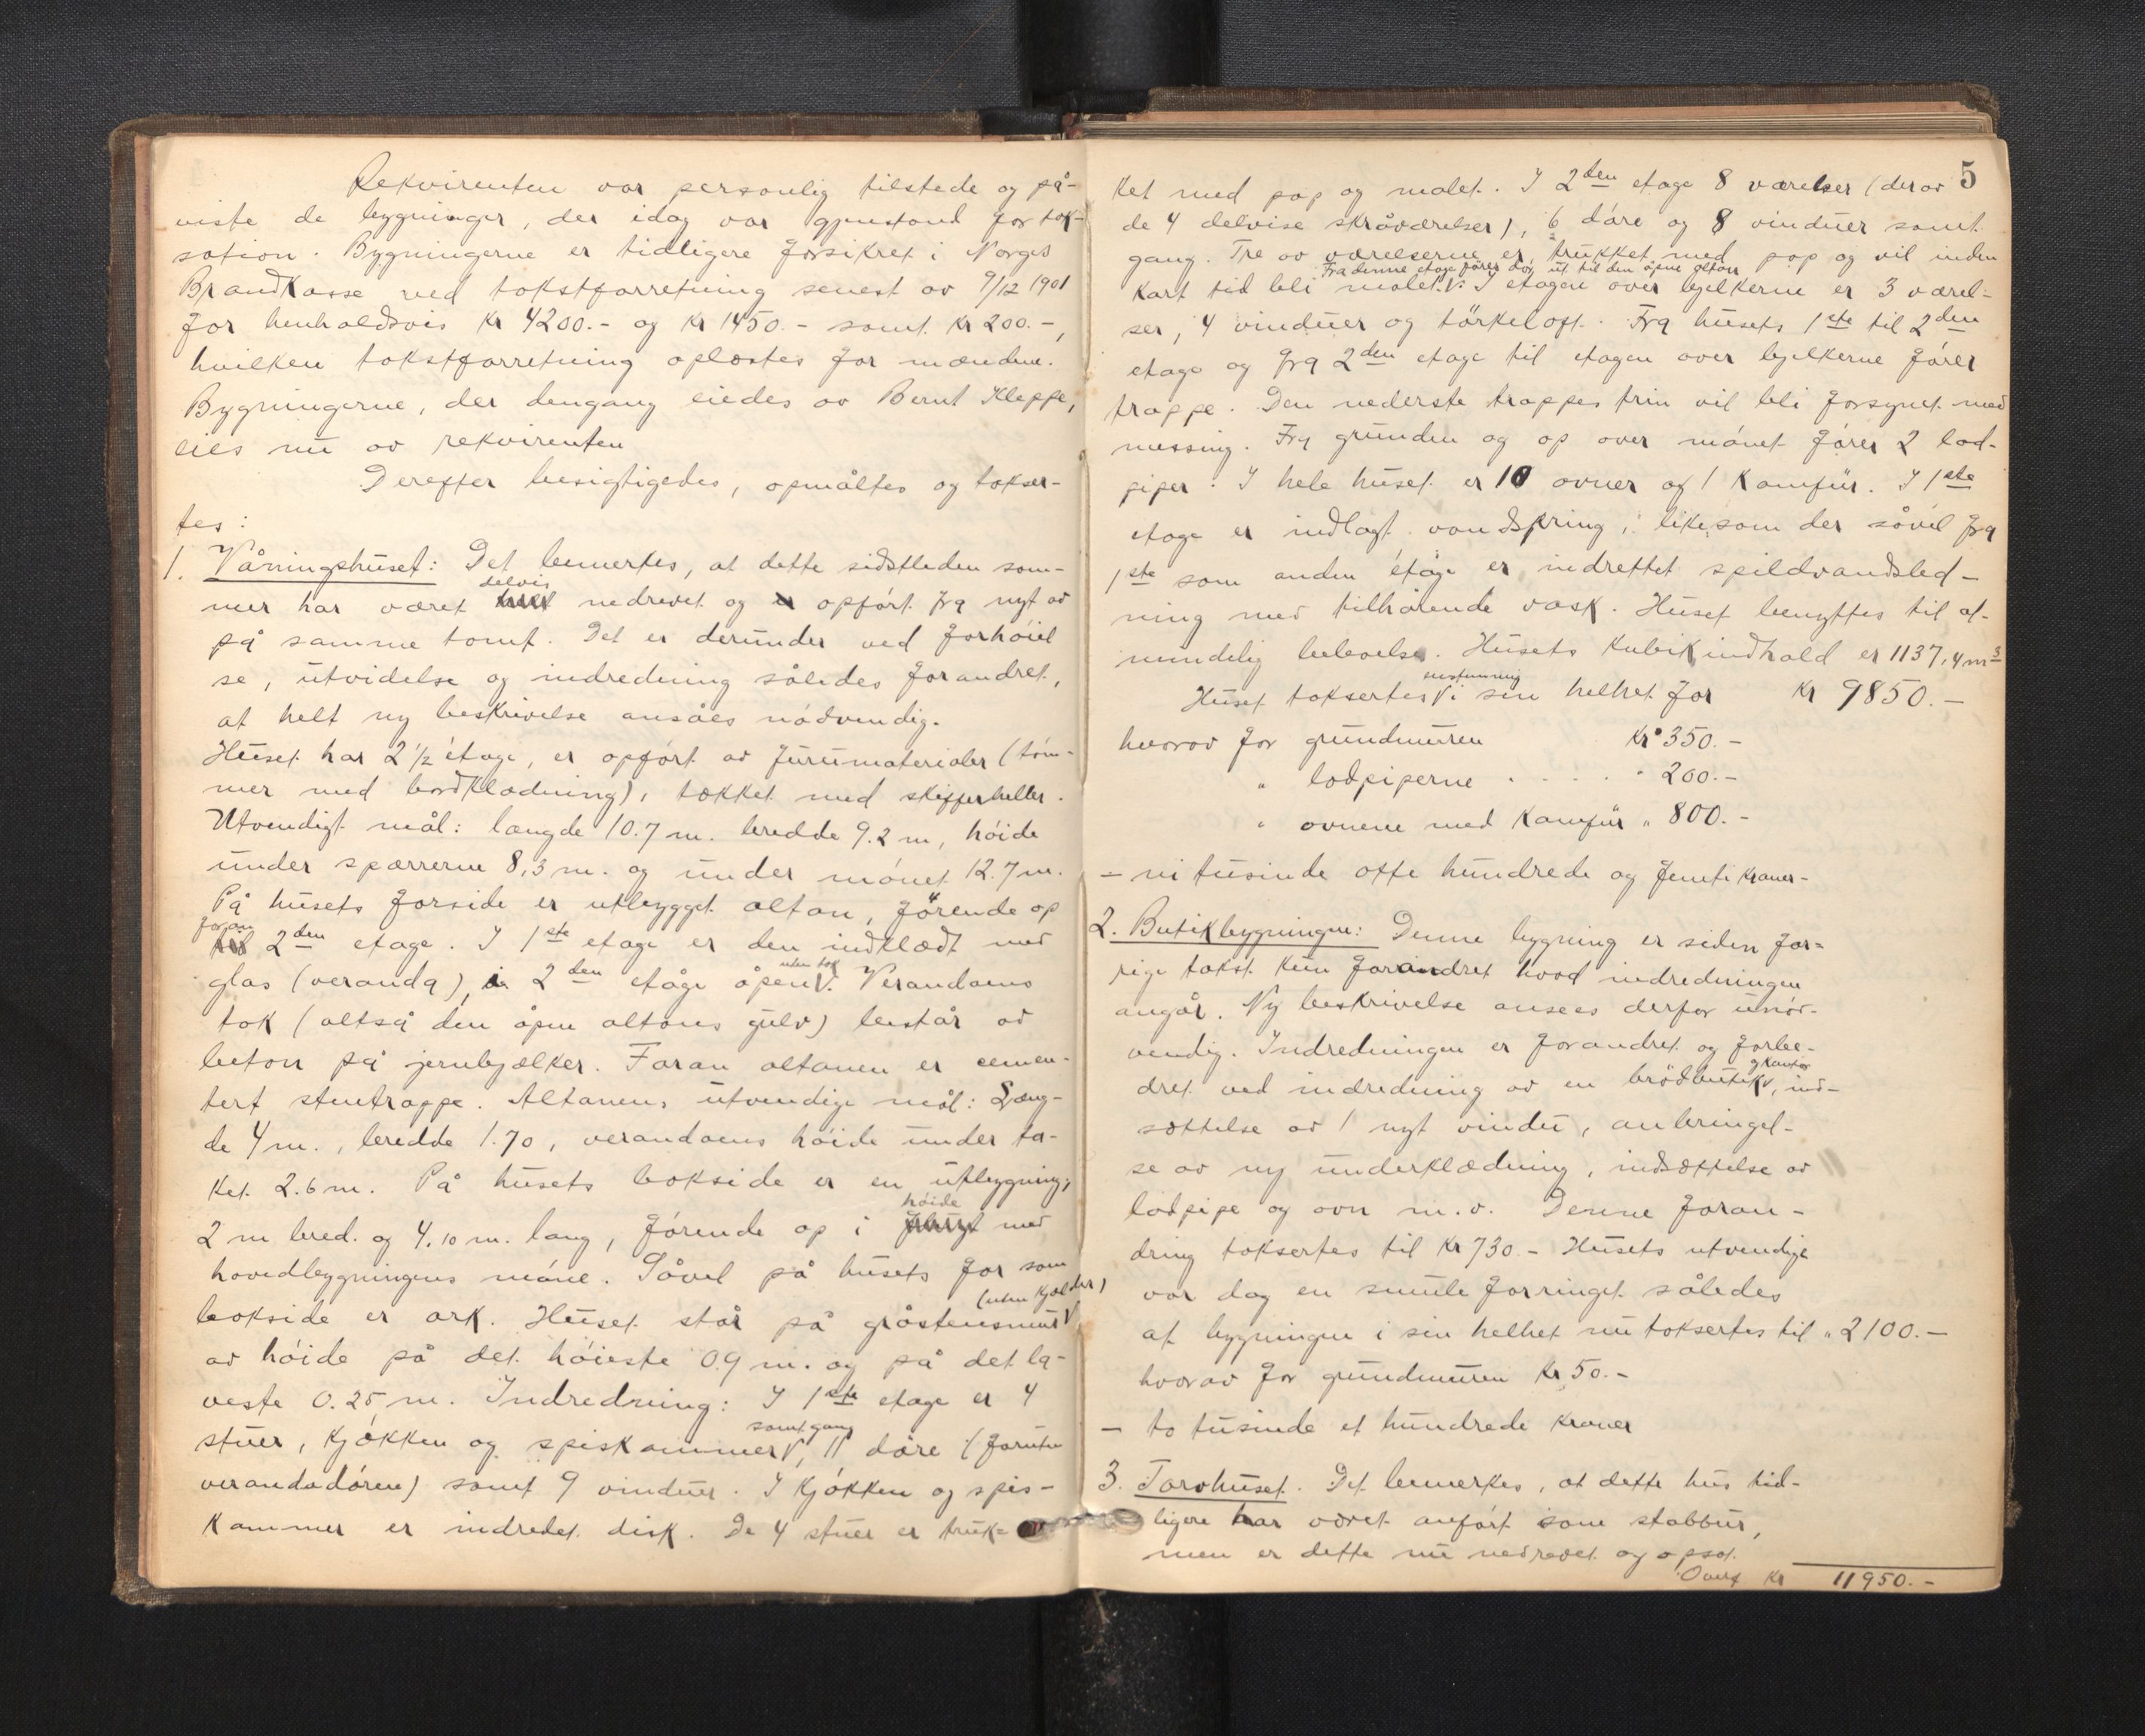 Rekvirenten var personlig tilstede og på-
viste de bygninger, der idag var gjenstand for tak-
sation. Bygningerne er tidligere forsikret i Norges
Brandkasse ved takstforretning senest av 9/12 1901
for henholdsvis Kr 4200.- og Kr 1450.- samt Kr 200.-,
hvilken takstforretning oplæstes for mændene.
Bygningerne, der dengang eiedes av Bernt Kleppe,
eies nu av rekvirenten
Derefter besigtigedes, opmåltes og takser-
tes:
1. Våningshuset: Det bemerkes, at dette sidstleden som-
mer har været delvis nedrevet og opført fra nyt av
på samme tomt. Det er derunder ved forhøiel
se, utvidelse og indredning således forandret,
at helt ny beskrivelse ansåes nødvendig.
Huset har 2 1/2 etage, er opført av furumaterialer (tøm-
mer med bordklædning), tækket med skifferheller.
Utvendigt mål: længde 10.7 m. bredde 9.2 m, høide
under spærrerne 8,3 m. og under mønet 12.7 m.
På husets forside er utbygget altan, førende op
foran 2den etage. I 1ste etage er den indklædt med
glas (veranda), i 2den etage åpen uten tak. Verandaens
tak (altså den åpne altans gulv) består av
beton på jernbjælker. Foran altanen er cemen-
tert stentrappe. Altanens utvendige mål: Læng-
de 4 m., bredde 1.70, verandaens høide under ta-
ket 2.6 m. På husets bakside er en utbygning,
2 m bred. og 4.10 m. lang, førende op i høide med
hovedbygningens møne. Såvel på husets for som
bakside er ark. Huset står på gråstensmur (uten kjælder)
av høide på det høieste 0.9 m. og på det la-
veste 0.25 m. Indredning: I 1ste etage er 4
stuer, kjøkken og spiskammer samt gang, 11 døre (foruten
verandadøren) samt 9 vinduer. I kjøkken og spis-
kammer er indredet disk. De 4 stuer er truk-
5
ket med pap og malet. I 2den etage 8 værelser (derav
de 4 delvise skråværelser), 6 døre og 8 vinduer samt
gang. Tre av værelserne er trukket med pap og vil inden
Fra denne etage fører dør ut til den åpne altan
kort tid bli malet. I etagen over bjelkerne er 3 værel-
ser, 4 vinduer og tørkeloft. Fra husets 1ste til 2den
etage og fra 2den etage til etagen over bjelkerne fører
trappe. Den nederste trappes trin vil bli forsynet med
messing. Fra grunden og op over mønet fører 2 lod-
piper. I hele huset er 10 ovner og 1 Komfur. I 1ste
etage er indlagt vandspring, likesom der såvel fra
1ste som anden etage er indrettet spildvandsled-
ning med tilhørende vask. Huset benyttes til al-
mindelig beboelse. Husets Kubikindhold er 1137,4 m3
Huset taksertes i sin helhet for Kr 9850.-
hvorav for grundmuren Kr 350.-
" lodpiperne . . . . " 200.-
" ovnene med Komfur " 800.-
- ni tusinde otte hundrede og femti Kroner-
2. Butikbygningen: Denne bygning er siden for-
rige takst kun forandret hvad indredningen
angår. Ny beskrivelse ansees derfor unød-
vendig. Indredningen er forandret og forbe-
dret ved indredning av en brødbutik og kontor, ind-
sættelse av 1 nyt vindu, anbringel-
se av ny underklædning, indsættelse av
lodpipe og ovn m.v. Denne foran-
dring taksertes til Kr 730.- Husets utvendige
var dog en smule forringet således
at bygningen i sin helhet nu taksertes til " 2100.-
hvorav for grundmuren Kr 50.-
- to tusinde et hundrede Kroner
3. Torvhuset. Det bemerkes, at dette hus tid-
ligere har været anført som stabbur,
men er dette nu nedrevet og opsat
Overf Kr 11950.-